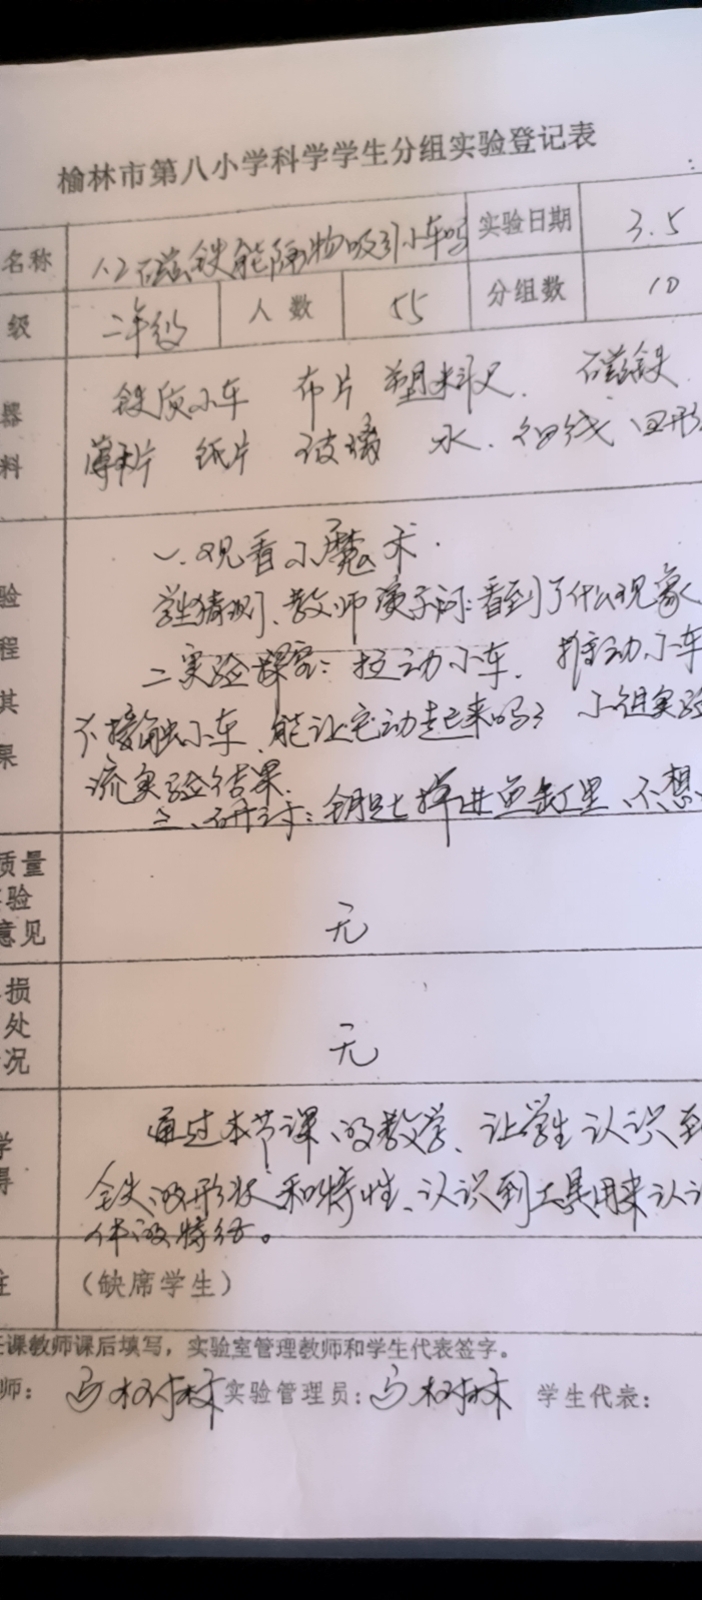 榆林市第八小学科学学生分组实验登记表
名称 (2)磁铁能隔物吸引小车吗 实验日期 3.5
级 二年级 人数 55 分组数 10
器 铁质小车 布片 塑料尺. 磁铁
料 薄木片 纸片 玻璃 水. 细线 回形
一. 观看小魔术.
验 学生猜测、教师演示问: 看到了什么现象
程 二实验探究: 拉动小车. 推动小车
其 不接触小车、能让它动起来吗? 小组实验
果 流实验结果.
三、研讨: 钥匙掉进鱼缸里、不想
质量
验
意见 无
损
处
况 无
学 通过本节课的教学、让学生认识到
得 铁的形状和特性、认识到工具用来认识
体的特征。
注 (缺席学生)
任课教师课后填写，实验室管理教师和学生代表签字。
师: 马树林 实验管理员: 马树林 学生代表: